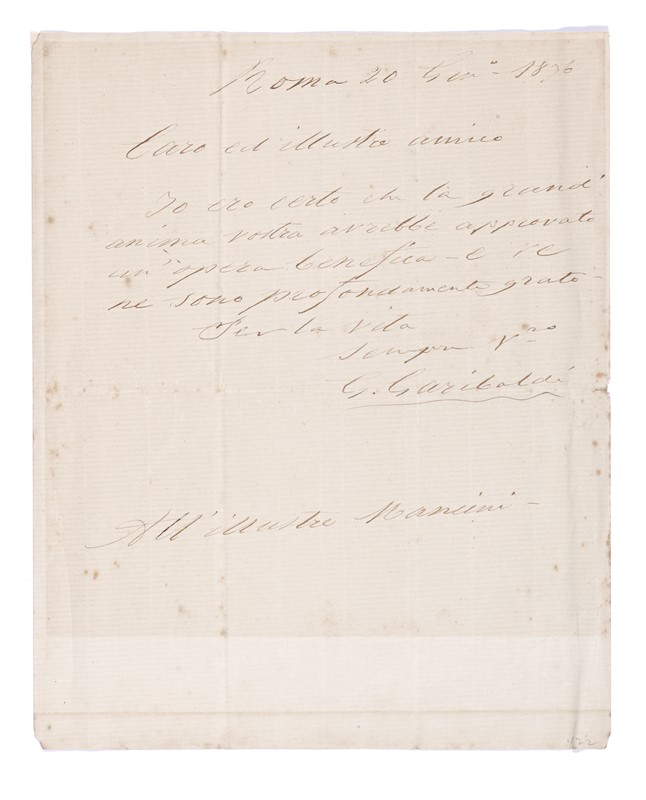 Roma 20 Gen.º 1876
Caro ed illustre amico
Io ero certo che la grand'
anima vostra avrebbe approvato
un'opera benefica - e ve
ne sono profondamente grato -
Per la vita
Sempre V.ro
G. Garibaldi
All'illustre Mancini -